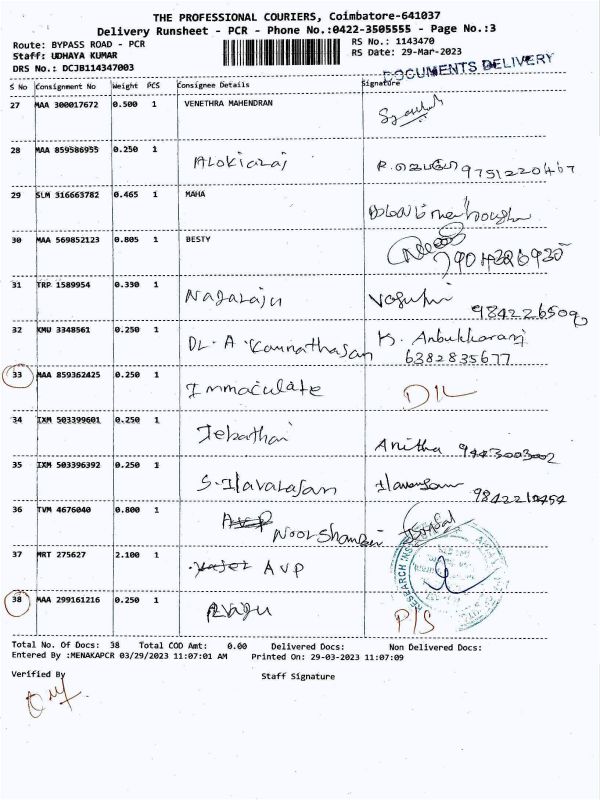 THE PROFESSIONAL COURIERS, Coimbatore-641037
Delivery Runsheet - PCR - Phone No.:0422-3505555 - Page No.:3
Route: BYPASS ROAD - PCR
RS No.: 1143470
Staff: UDHAYA KUMAR
RS Date: 29-Mar-2023
DRS No.: DCJB114347003
DOCUMENTS DELIVERY
S No Consignment No Weight PCS Consignee Details Signature
27 MAA 300017672 0.500 1 VENETHRA MAHENDRAN
28 MAA 859586955 0.250 1 Alokiaraj 9751220467
29 SLM 316663782 0.465 1 MAHA
30 MAA 569852123 0.805 1 BESTY
31 TRP 1589954 0.330 1 Nagaraju
32 KMU 3348561 0.250 1 K. Anbukkarasi
6382835677
33 MAA 859362425 0.250 1 Immaculate D/L
34 IXM 503399601 0.250 1 Jebathai Anitha 9443003002
35 IXM 503396392 0.250 1 S. Ilavarasan
36 TVM 4676040 0.800 1 AVP
37 MRT 275627 2.100 1 AVP
38 MAA 299161216 0.250 1 P/S
RESEARCH INS
Total No. Of Docs: 38 Total COD Amt: 0.00 Delivered Docs: Non Delivered Docs:
Entered By :MENAKAPCR 03/29/2023 11:07:01 AM Printed On: 29-03-2023 11:07:09
Verified By Staff Signature